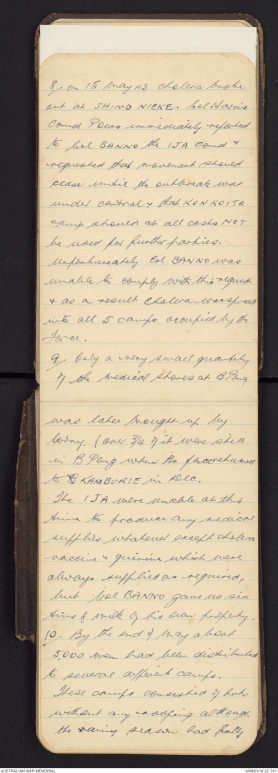 8. On 15 May 43 cholera broke
out at SHIMO NIEKE. Col Harris
Comd Powes immediately reported
to Col BANNO the IJA Comd &
requested that movement should
cease until the outbreak was
under control & that KONKOITA
camp should at all costs NOT
be used for further parties.
Unfortunately Col BANNO was
unable to comply with this request
& as a result cholera was spread
into all 5 camps occupied by the
Force.
9. Only a very small quantity
of the medical stores at B Pong
was later brought up by
lorry. (over 3/4 of it were still
in B Pong when the force returned
to KAMBURIE in Dec.
The IJA were unable at this
time to produce any medical
supplies whatever except cholera
vaccine & quinine which were
always supplied as required,
but Col BANNO gave us six
tins of milk of his own property.
10. By the end of May about
5,000 men had been distributed
to several different camps.
These camps consisted of huts
without any roofing although
the rainy season had fully
AUSTRALIAN WAR MEMORIAL